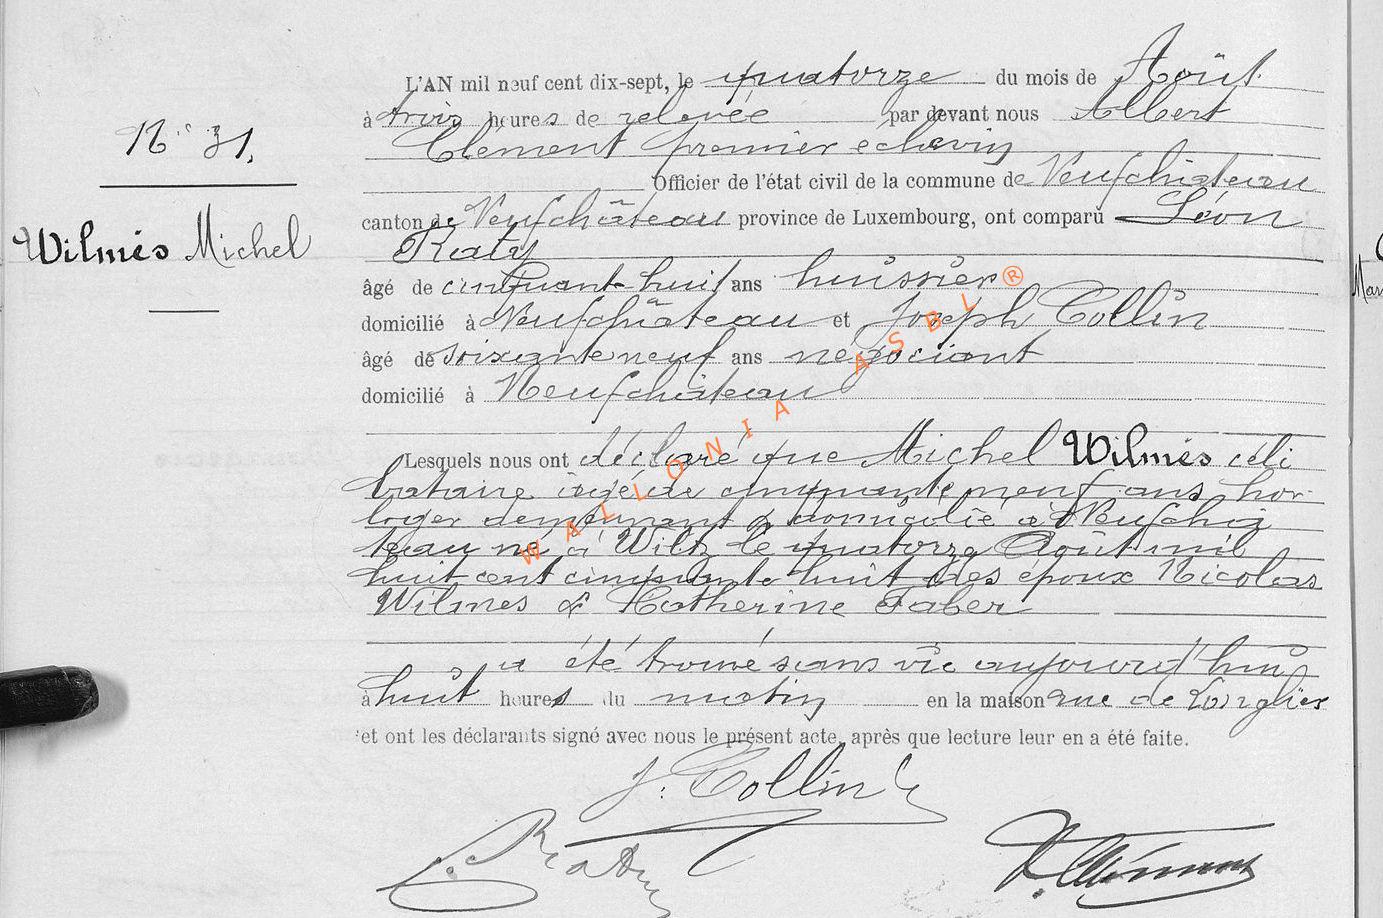 L'AN mil neuf cent dix-sept, le quatorze du mois de Août
à trois heures de relevée par devant nous Albert
Clément premier échevin
N° 31.
Officier de l'état civil de la commune de Neufchâteau
canton de Neufchâteau province de Luxembourg, ont comparu Léon
Wilmés Michel
Raty
âgé de cinquant-huit ans huissier
domicilié à Neufchâteau et Joseph Collin
âgé de soixante neuf ans négociant
domicilié à Neufchâteau
WALLONIA ASBL®
Lesquels nous ont déclaré que Michel Wilmés céli
bataire âgé de cinquante neuf ans hor-
loger demeurant & domicilié à Neufchâ
teau né à Wiltz le quatorze Août mil
huit cent cinquante huit des époux Nicolas
Wilmes & Katherine Faber
a été trouvé sans vie aujourd'hui
à huit heures du matin en la maison rue de
et ont les déclarants signé avec nous le présent acte, après que lecture leur en a été faite.
J. Collin
L. Raty
A. Clément